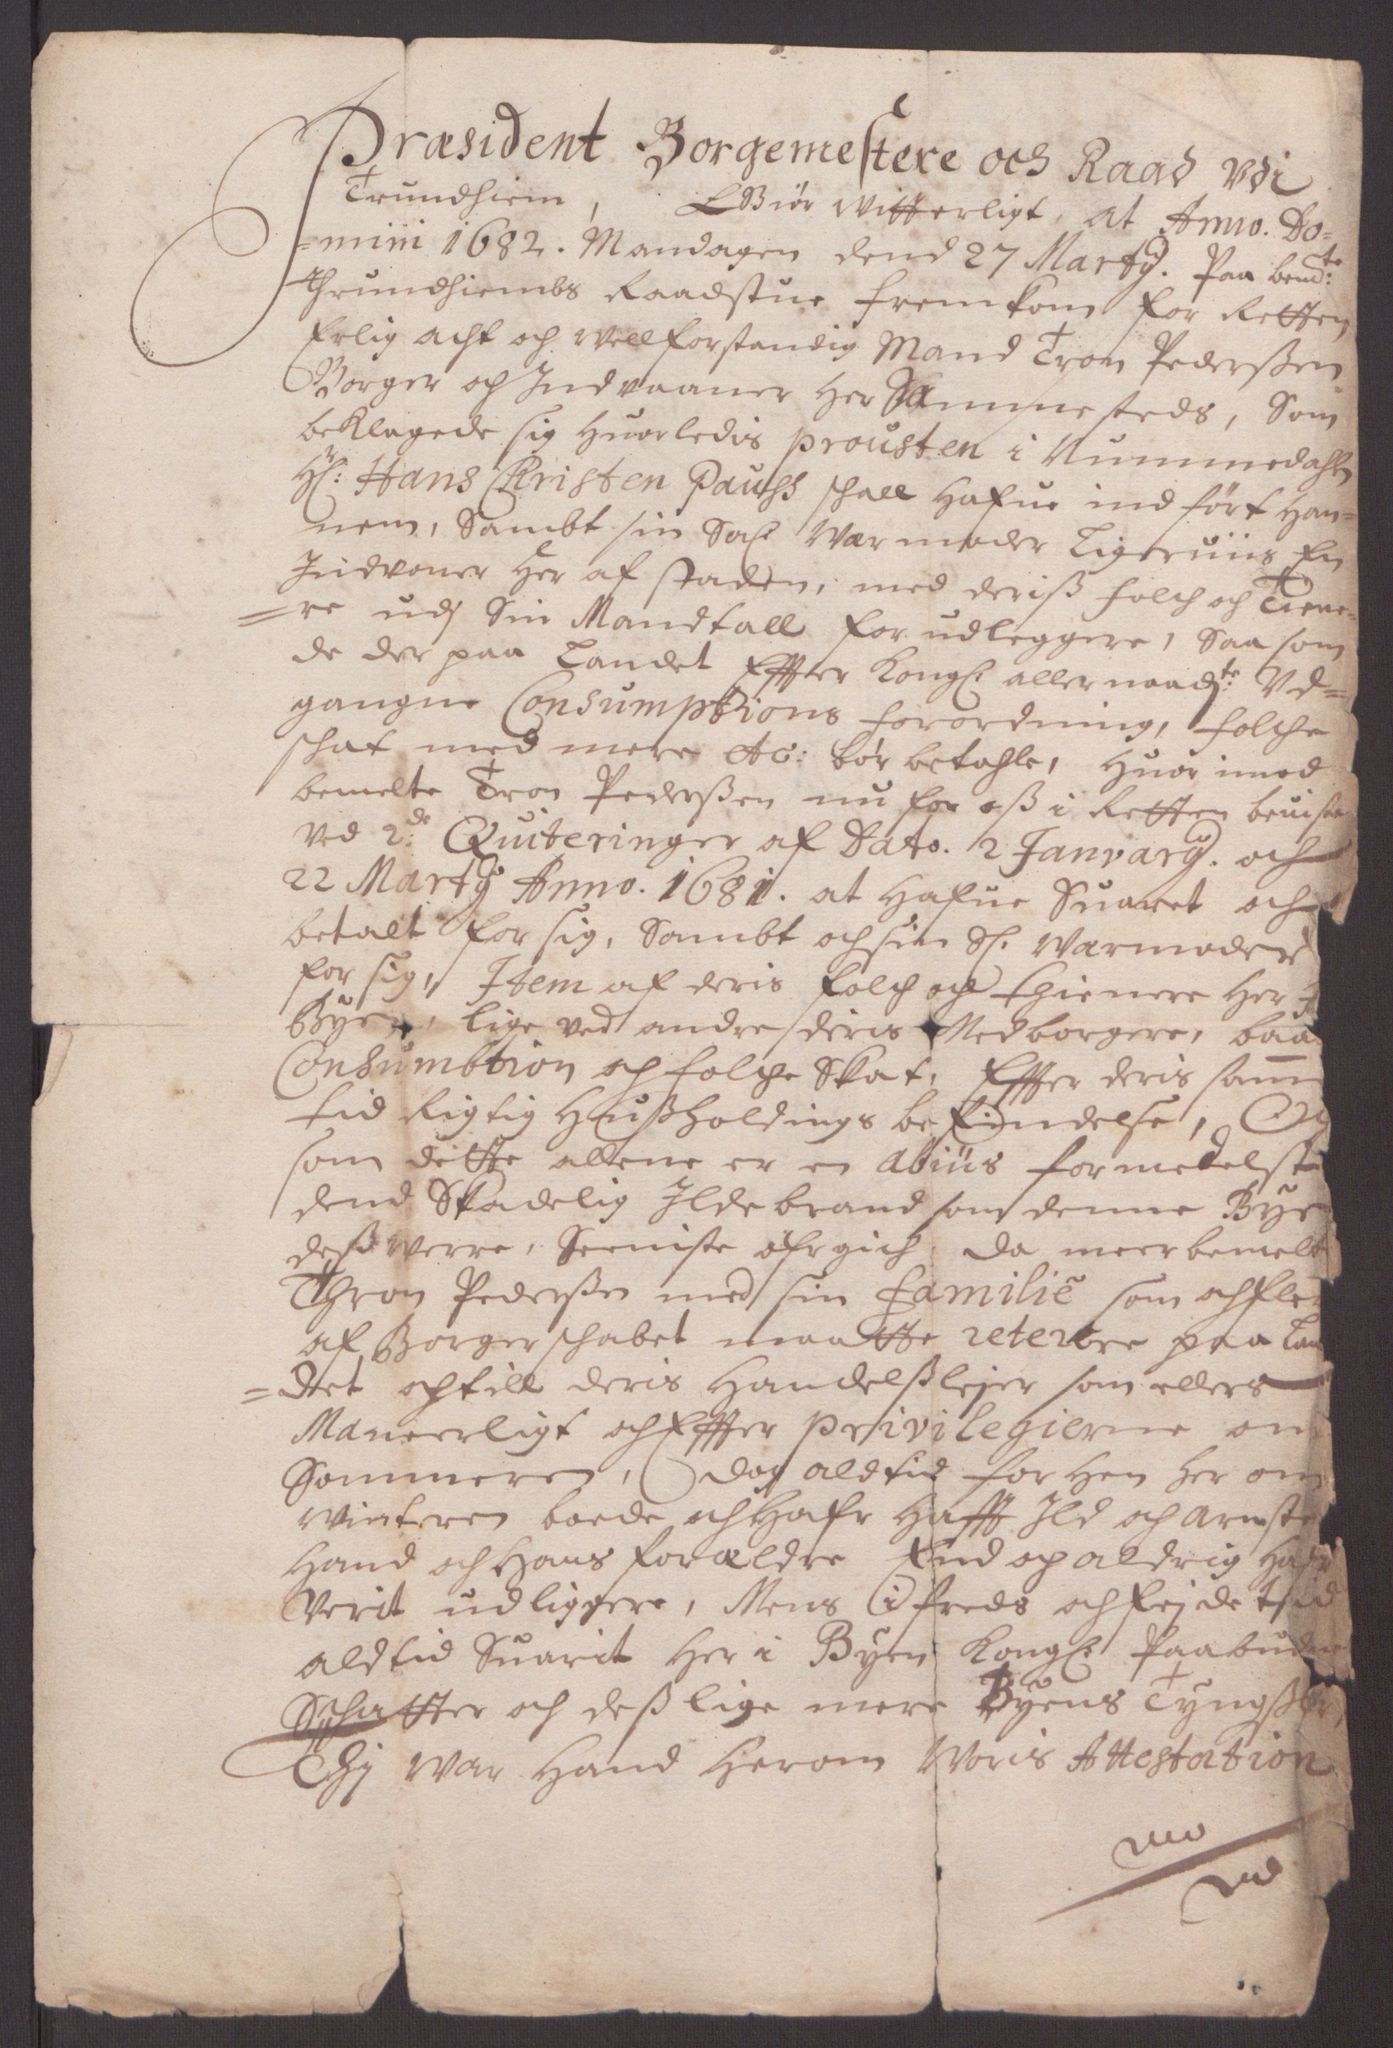 Præsident Borgemestere och Raad udi
Trundhiem, Giør Witterligt, at Anno. Do-
=mini 1682. Mandagen dend 27 Martij. Paa bemdte:
Thrundhiembs Raadstue fremkom for Retten
Erlig acht och Wellforstandig Mand Tron Pederßen
Borger och Indvaaner Her Sammesteds, Som
beklagede sig Huorledis prousten i Nummedahln
Hr: Hans Christen Pauhs schall Hafue indført Han-
nem, Sambt sin Sal: Wærmoder Ligeruiis En
Indvoner Her af staden, med deriß folch och Tiene-
=re udj Sin Mandtall for udleggere, Saa som
de der paa Landet Effter Kongl: allernaadste: Ud=
gangne Consumptions forordning, folche
schat med mere etc: bør betahle, Huor imod
bemelte Tron Pederßen nu for oß i Retten beuiste
Ved 2de: Quiteringer af Dato. 2 Januarij. och
22 Martij Anno. 1681. at Hafue Suaret och
betalt for sig, Sambt och sin Sl. Wærmoder
for sig, Item af deris folch och thienere Her
Byen, lige ved andre deris Medborgere, baa
Consumbtion och folche Skat, Effter deris samm
tid Rigtig Hußholdings befindelse,
som dette allene er en abiis formedelst
dend Skadelig Ildebrand som denne Bye
deß werre, Seeniste ofrgich da meerbemelt
Thron Pederßen med sin familie som och fler
af Borgerschabet maatte reterere paa Lan
=det och till deris Handelßlejer som ellers
Maneerligt och Effter privilegierne om
Sommeren, dog aldtid forhen her om
Winteren boede och Hafr Hafft Ild och Arnste
Hand och Hans forældre End och aldrig Hafr
Verit udliggere, Mens i freds och fejde tjid
aldtid Suarit Her i Byen Kongl: Paabudne
Schatter och deßlige mere Byens Tyngßler,
Thj War Hand Herom Woris Attestation